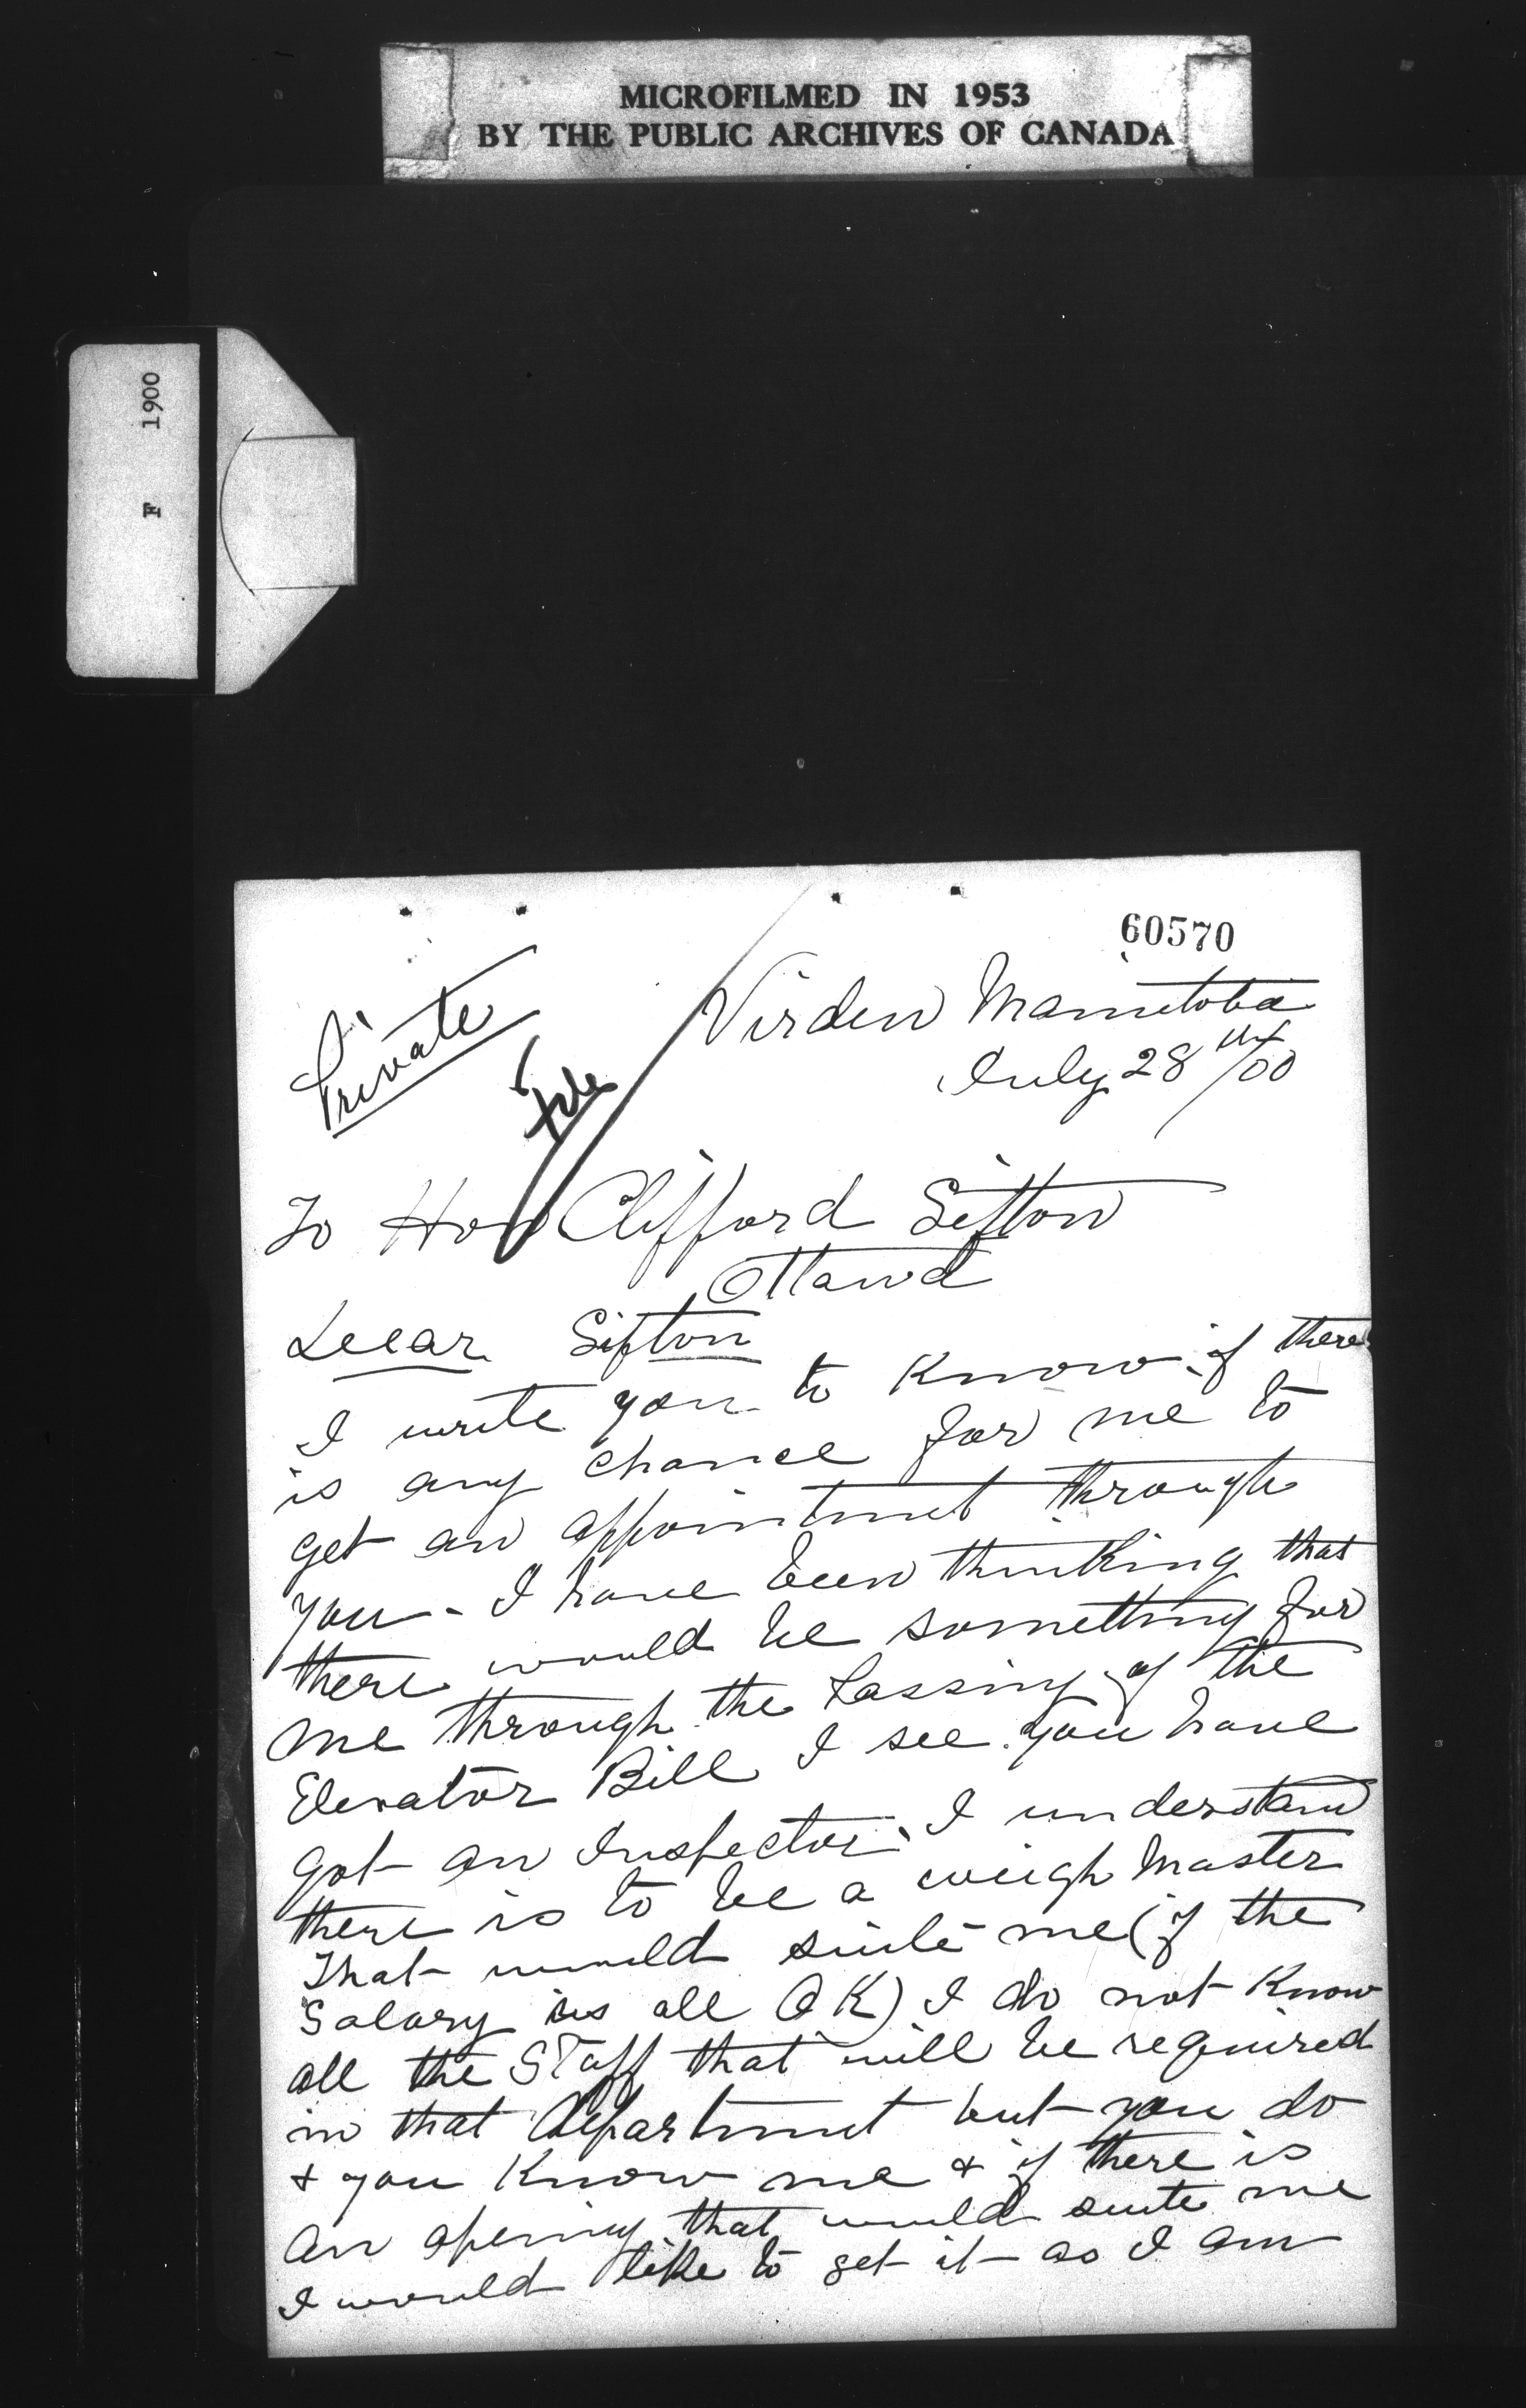 MICROFILMED IN 1953
BY THE PUBLIC ARCHIVES OF CANADA
F 1900
60570
Private
File
Virden Manitoba
July 28th/00
To Hon Clifford Sifton
Ottawa
Dear Sifton
I write you to Know if there
is any chance for me to
get an appointment through
you - I have been thinking that
there would be something for
me through the Passing of the
Elevator Bill I see you have
got an Inspector I understand
there is to be a weigh Master
That would suite me (if the
Salary is all OK) I do not Know
all the Staff that will be required
in that Department but you do
+ you Know me + if there is
an opening that would suite me
I would like to get it as I am